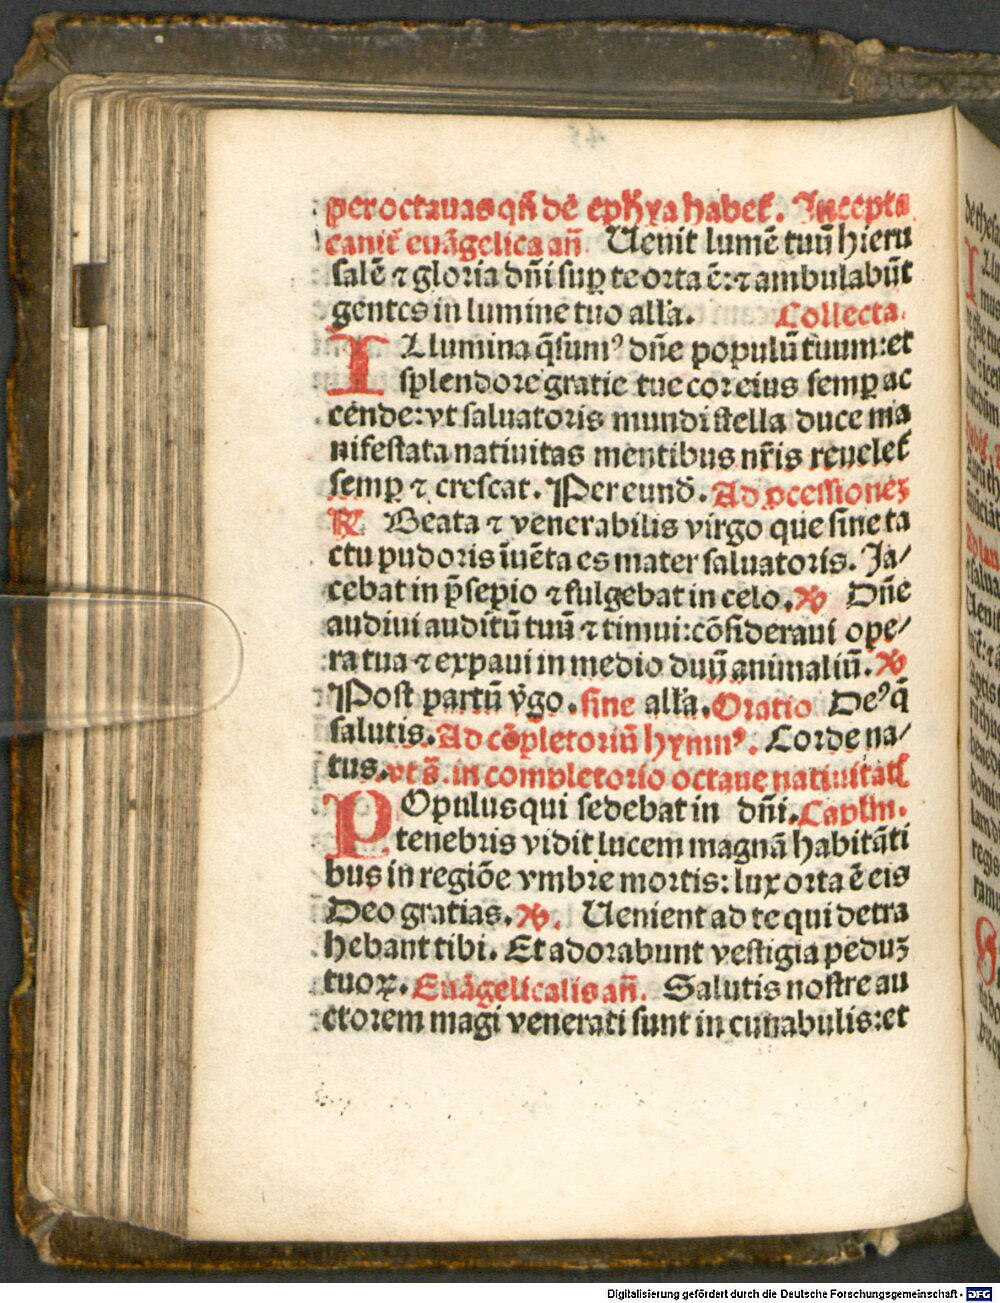 per octauas qñ de ephȳa habet᷑. Incepta
canit᷑ euāgelica añ Uenit lumē tuū hieru
salē ⁊ gloria dñi suꝑ te orta ē: ⁊ ambulabūt
gentes in lumine tuo alľa. Collecta.
ILlumina q̄sumꝰ dñe populū tuum: et
splendore gratie tue cor eius semꝑ ac
cende: vt saluatoris mundi stella duce ma
nifestata natiuitas mentibus nr̄is reuelet᷑
semꝑ ⁊ crescat. Per eund̄. Ad ꝓcessiones
℟ Beata ⁊ venerabilis virgo que sine ta
ctu pudoris īuēta es mater saluatoris. Ja/
cebat in p̄sepio ⁊ fulgebat in celo. ℣ Dñe
audiui auditū tuū ⁊ timui: cōsideraui ope/
ra tua ⁊ expaui in medio duū animaliū. ℣
Post partū v̊go. sine alľa. Oratio Deꝰ q̄
salutis. Ad cōpletoriū hymnꝰ. Corde na/
tus. vt s̄. in completorio octaue natiuitat᷑
POpulus qui sedebat in dñi. Caplm.
tenebris vidit lucem magnā habitāti
bus in regiōe vmbre mortis: lux orta ē eis
Deo gratias. ℣. Uenient ad te qui detra
hebant tibi. Et adorabunt vestigia peduꝫ
tuoꝝ. Euāgelicalis añ. Salutis nostre au
ctorem magi venerati sunt in cunabulis: et
Digitalisierung gefördert durch die Deutsche Forschungsgemeinschaft - DFG